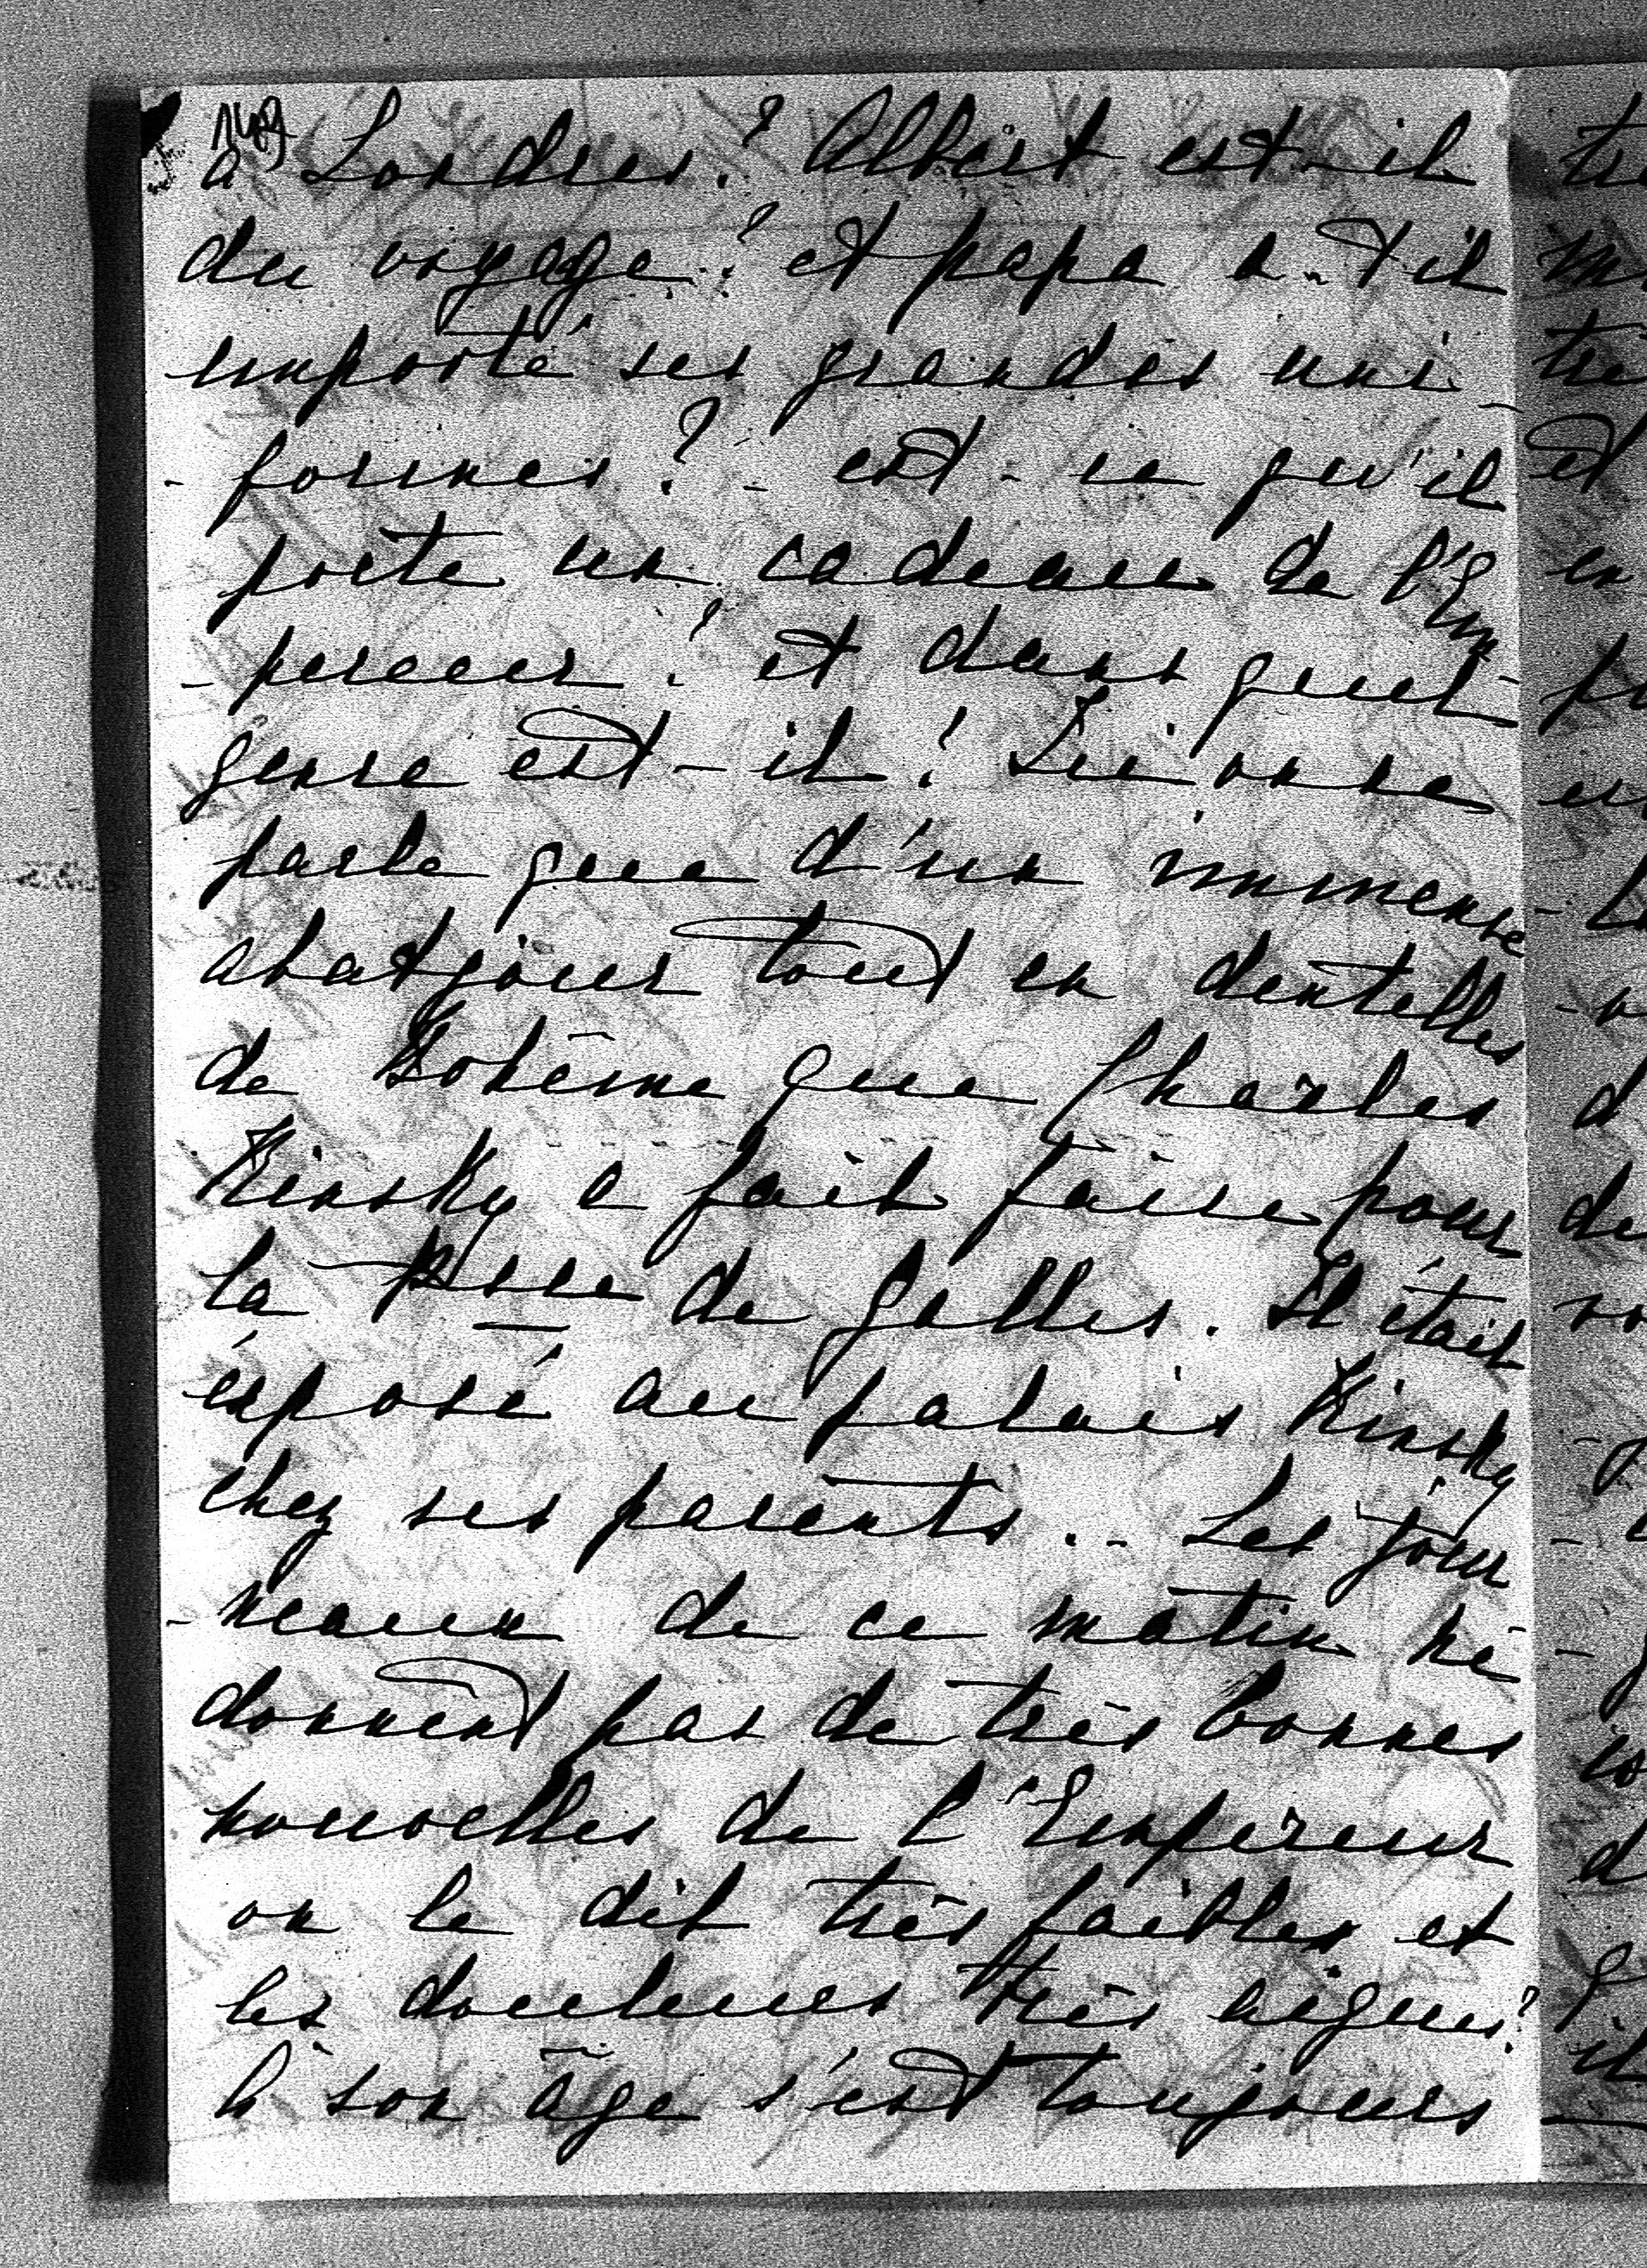 à Londres? Albert est-il
du voyage? et papa a-t-il
emporté ses grandes uni-
-formes? - est-ce qu'il
porte un cadeau de l'Em
-pereur? et dans quel
genre est-il? Ici on ne
parle que d'un immense
abatjour tout en dentelles
de Bohême que Charles
Kinsky a fait faire pour
la Psse de Galles. Il était
exposé au palais Kinsky
chez ses parents.. - Les jour
-neaux de ce matin ne
donnent pas de très bonnes
nouvelles de l'Empereur
on le dit très faibles et
les douleurs très aigues?
à son âge s'est toujours